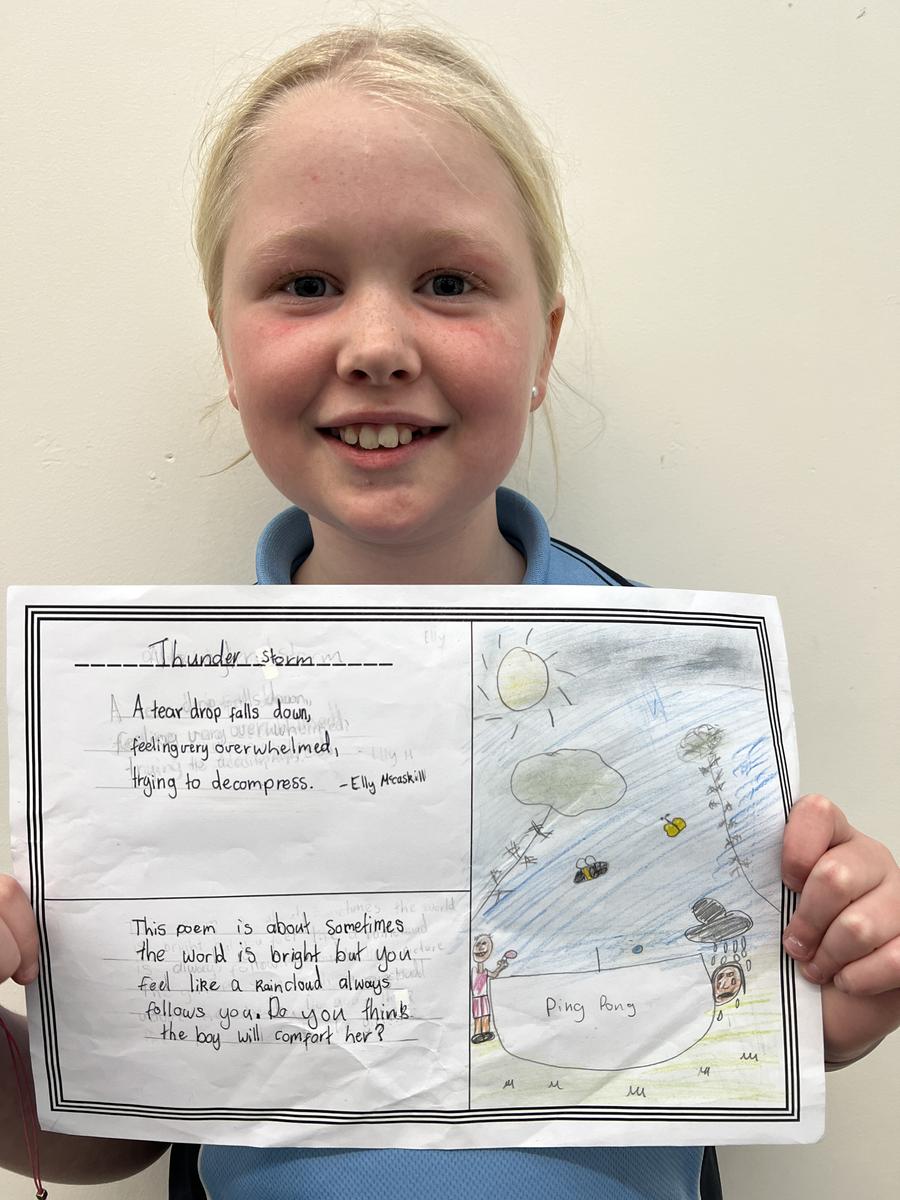 Elly
Thunder storm
A tear drop falls down,
feeling very overwhelmed,
trying to decompress. -Elly Mcaskill
This poem is about Sometimes
the world is bright but you
feel like a Raincloud always
follows you. Do you think
the boy will comfort her?
Ping Pong